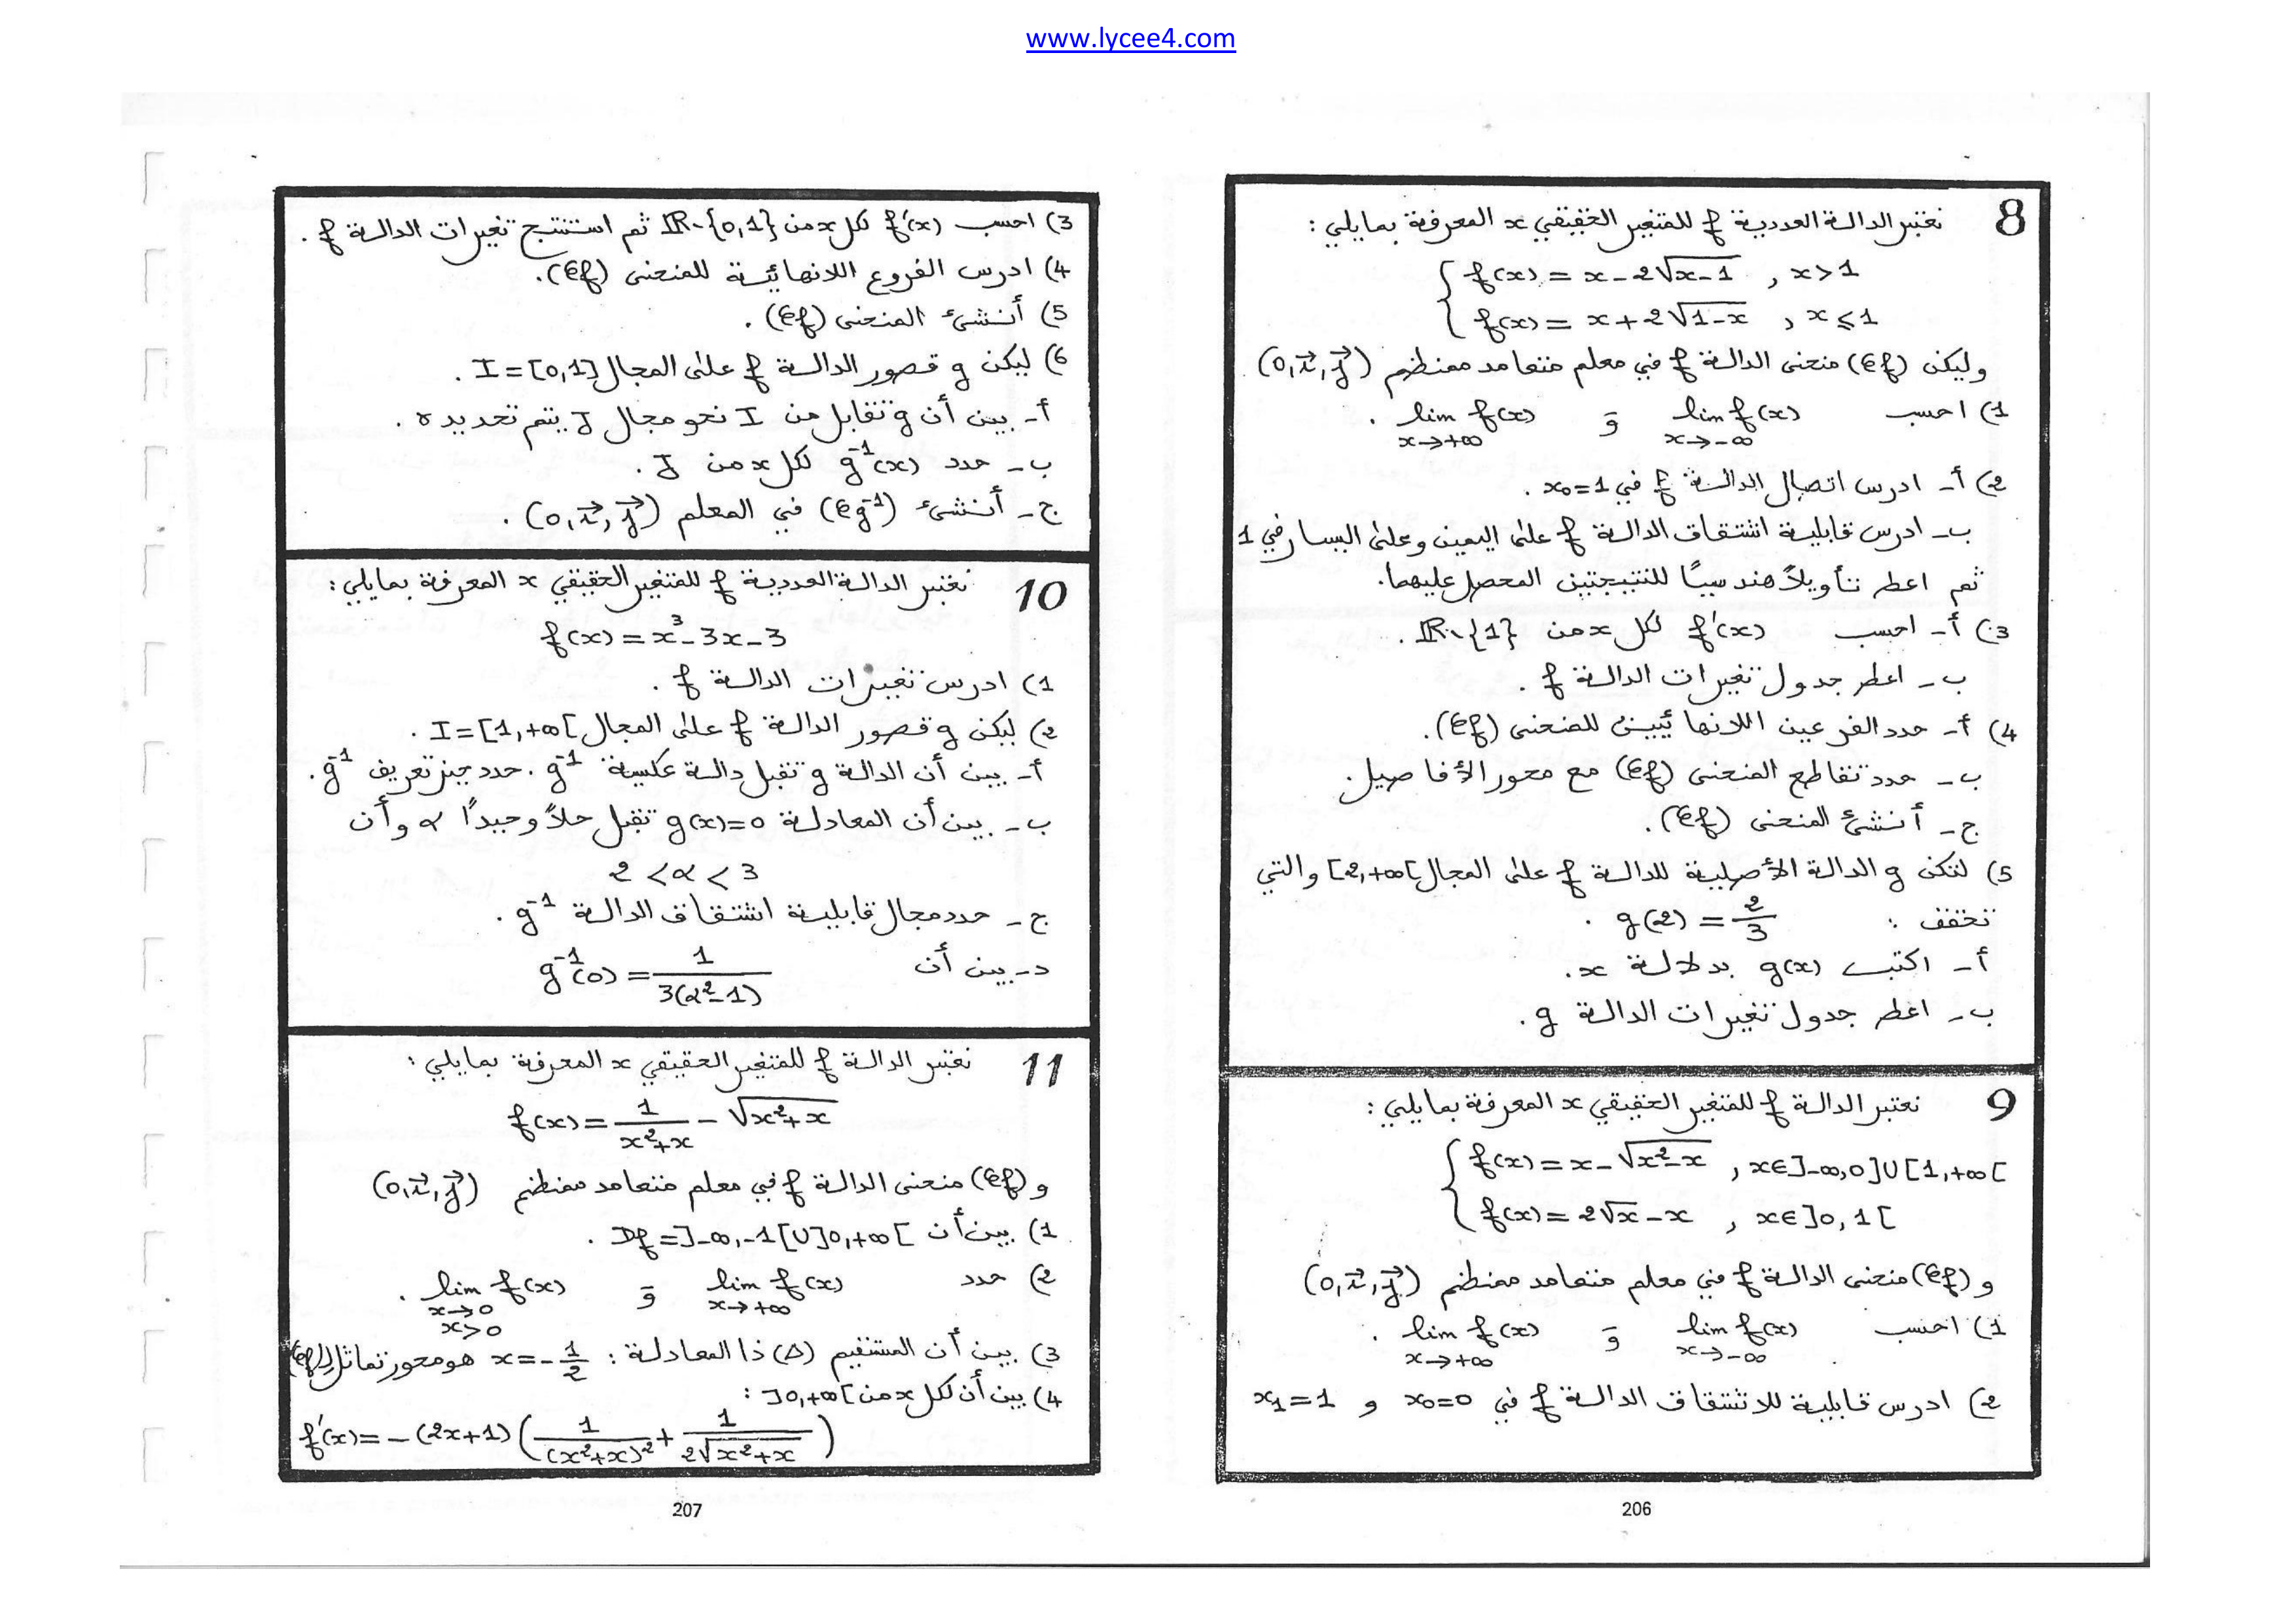 www.lycee4.com
8 نعتبر الدالة العددية f للمتغير الحقيقي x المعرفة بما يلي :
f(x) = x - 2√(x-1) , x > 1
f(x) = x + 2√(1-x) , x ≤ 1
وليكن (Cf) منحنى الدالة f في معلم متعامد ممنظم (O, i⃗, j⃗)
1) احسب lim f(x) x→-∞ و lim f(x) x→+∞ .
2) أ- ادرس اتصال الدالة f في x₀=1 .
ب- ادرس قابلية اشتقاق الدالة f على اليمين وعلى اليسار في 1
ثم اعط تأويلاً هندسيًا للنتيجتين المحصل عليهما.
3) أ- احسب f'(x) لكل x من ℝ∖{1} .
ب- اعط جدول تغيرات الدالة f .
4) أ- حدد الفرعين اللانهائيين للمنحنى (Cf).
ب- حدد تقاطع المنحنى (Cf) مع محور الأفاصيل.
ج- أنشئ المنحنى (Cf).
5) لتكن g الدالة الأصلية للدالة f على المجال [2,+∞[ والتي
تحقق : g(2) = 2/3 .
أ- اكتب g(x) بدلالة x.
ب- اعط جدول تغيرات الدالة g .
9 نعتبر الدالة f للمتغير الحقيقي x المعرفة بما يلي :
f(x) = x - √(x²-x) , x∈]-∞,0]∪[1,+∞[
f(x) = 2√x - x , x∈]0,1[
و (Cf) منحنى الدالة f في معلم متعامد ممنظم (O, i⃗, j⃗)
1) احسب lim f(x) x→-∞ و lim f(x) x→+∞ .
2) ادرس قابلية للاشتقاق الدالة f في x₀=0 و x₁=1
206
3) احسب f'(x) لكل x من ℝ∖{0,1} ثم استنتج تغيرات الدالة f .
4) ادرس الفروع اللانهائية للمنحنى (Cf).
5) أنشئ المنحنى (Cf) .
6) ليكن g قصور الدالة f على المجال I=[0,1] .
أ- بين أن g تقابل من I نحو مجال J يتم تحديده .
ب- حدد g⁻¹(x) لكل x من J .
ج- أنشئ (Cg⁻¹) في المعلم (O, i⃗, j⃗) .
10 نعتبر الدالة العددية f للمتغير الحقيقي x المعرفة بما يلي :
f(x) = x³ - 3x - 3
1) ادرس تغيرات الدالة f .
2) ليكن g قصور الدالة f على المجال I=[1,+∞[ .
أ- بين أن الدالة g تقبل دالة عكسية g⁻¹ . حدد حيز تعريف g⁻¹ .
ب- بين أن المعادلة g(x)=0 تقبل حلاً وحيدًا α وأن
2 < α < 3
ج- حدد مجال قابلية اشتقاق الدالة g⁻¹ .
د- بين أن g⁻¹(0) = 1/(3(α²-1))
11 نعتبر الدالة f للمتغير الحقيقي x المعرفة بما يلي :
f(x) = 1/(x²+x) - √(x²+x)
و (Cf) منحنى الدالة f في معلم متعامد ممنظم (O, i⃗, j⃗)
1) بين أن Df = ]-∞,-1[∪]0,+∞[ .
2) حدد lim f(x) x→+∞ و lim f(x) x→0 x>0 .
3) بين أن المستقيم (Δ) ذا المعادلة : x = -1/2 هو محور تماثل لـ (Cf)
4) بين أن لكل x من ]0,+∞[ :
f'(x) = -(2x+1)(1/(x²+x)² + 1/(2√(x²+x)))
207